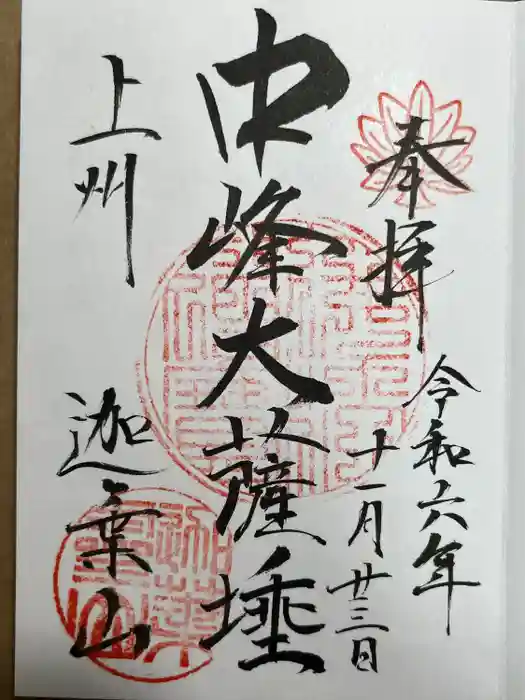 奉拝
令和六年
十一月廿三日
中峰大薩埵
上州
迦葉山